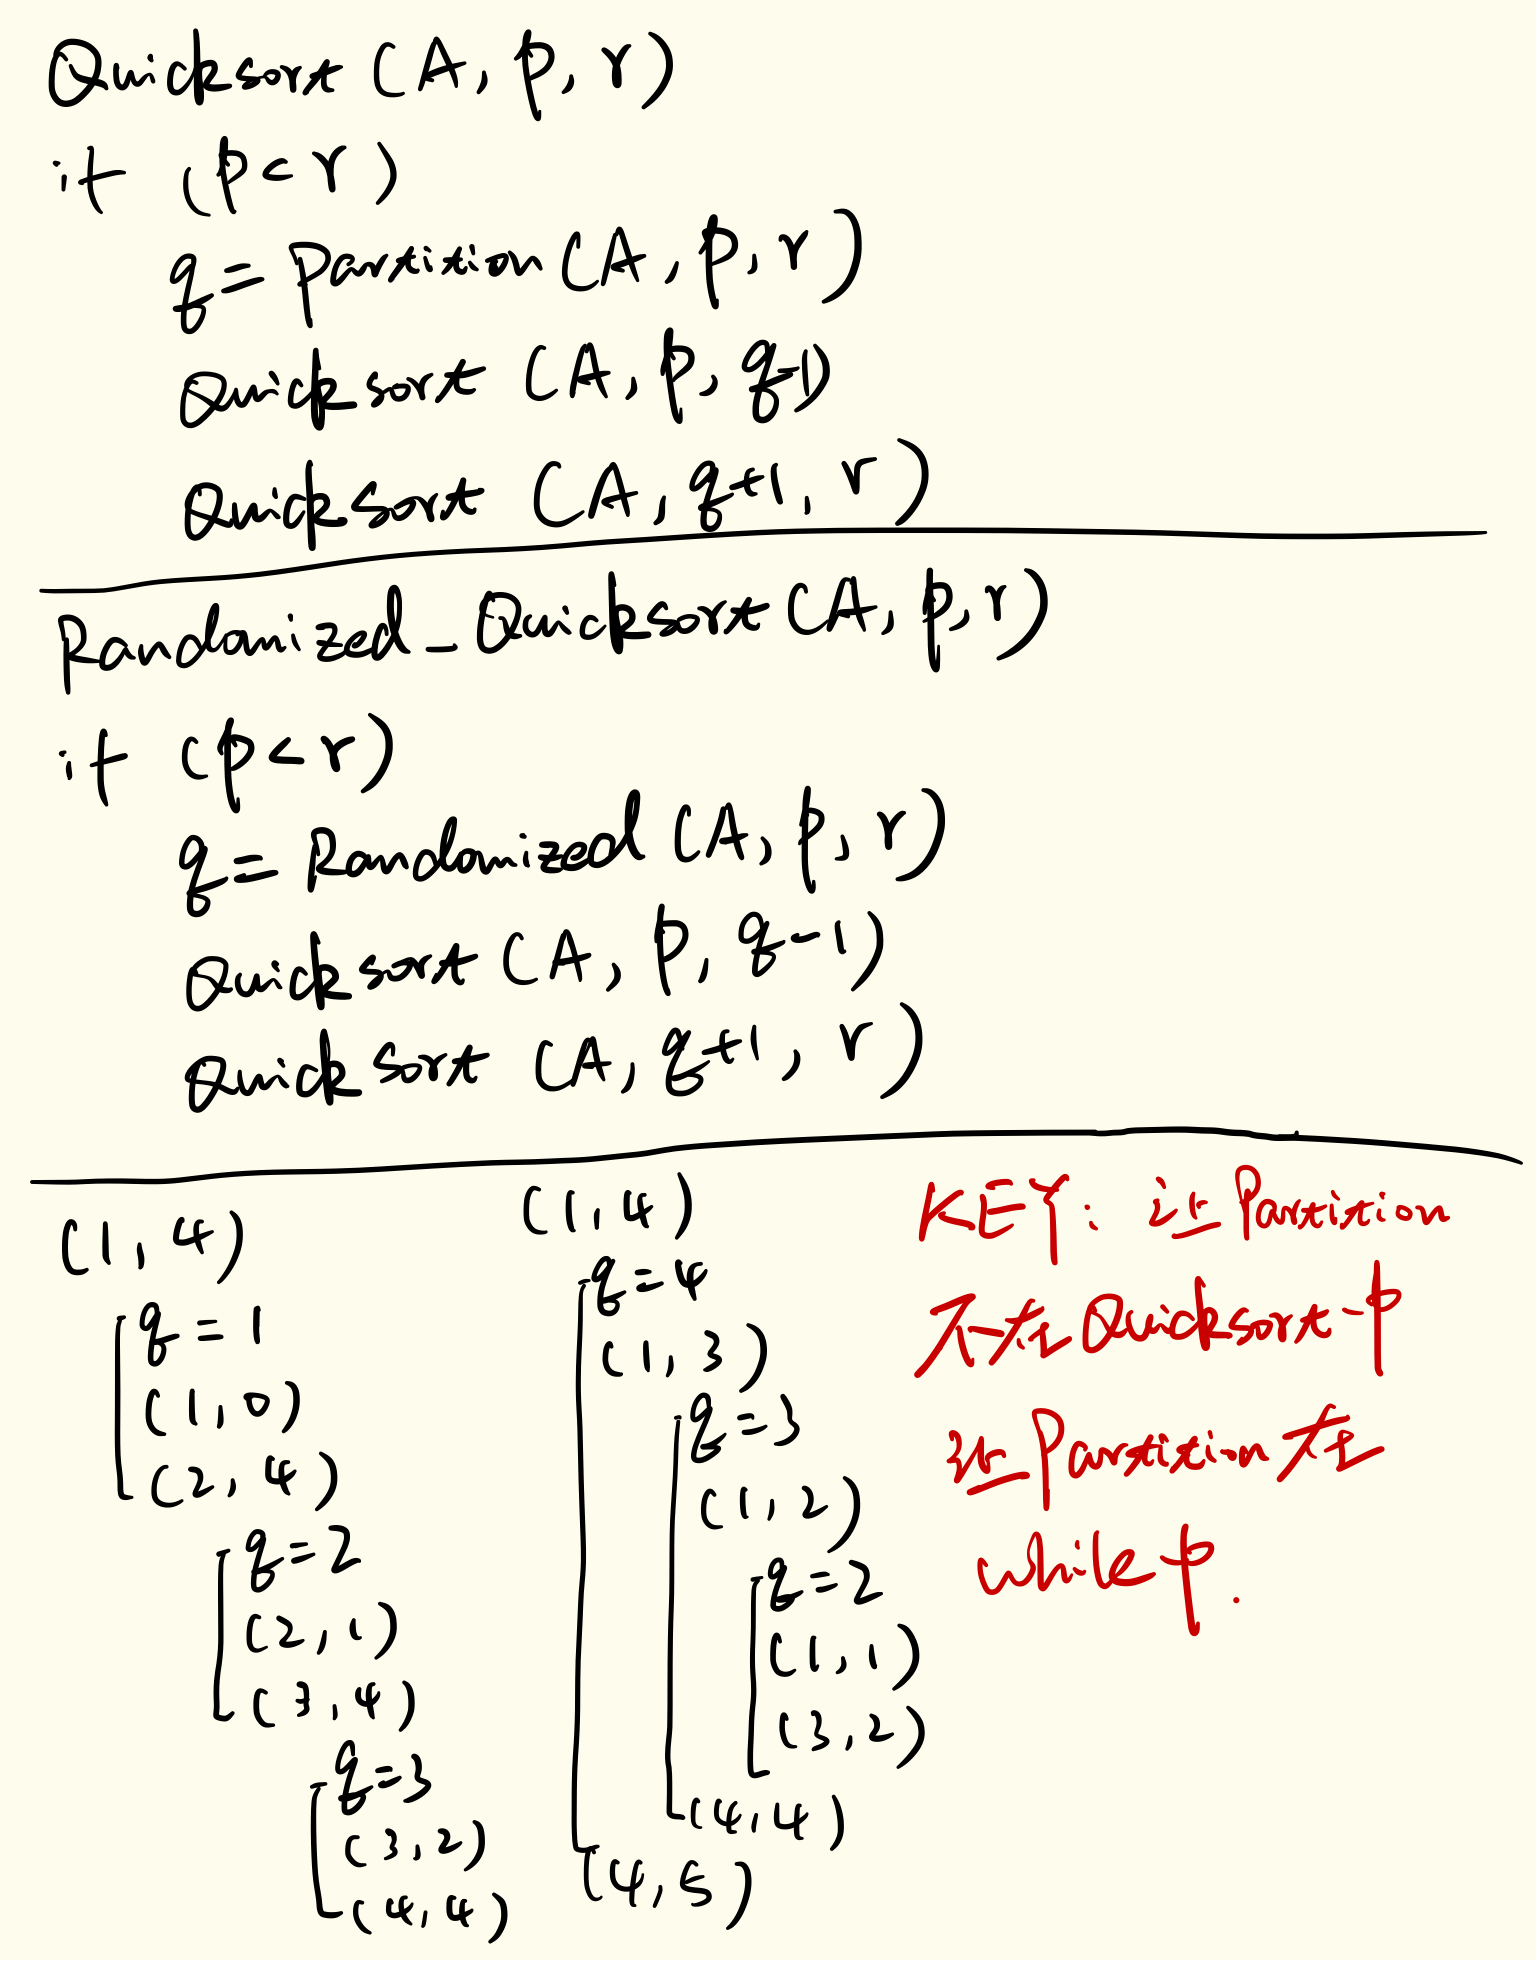 Quicksort (A, p, r)
if (p < r)
q = Partition (A, p, r)
Quicksort (A, p, q-1)
Quicksort (A, q+1, r)
Randomized_Quicksort (A, p, r)
if (p < r)
q = Randomized (A, p, r)
Quicksort (A, p, q-1)
Quicksort (A, q+1, r)
(1, 4)
q = 1
(1, 0)
(2, 4)
q = 2
(2, 1)
(3, 4)
q = 3
(3, 2)
(4, 4)
(1, 4)
q = 4
(1, 3)
q = 3
(1, 2)
q = 2
(1, 1)
(3, 2)
(4, 4)
(4, 5)
KEY: 让 Partition
不在 Quicksort 中
让 Partition 在
while 中.